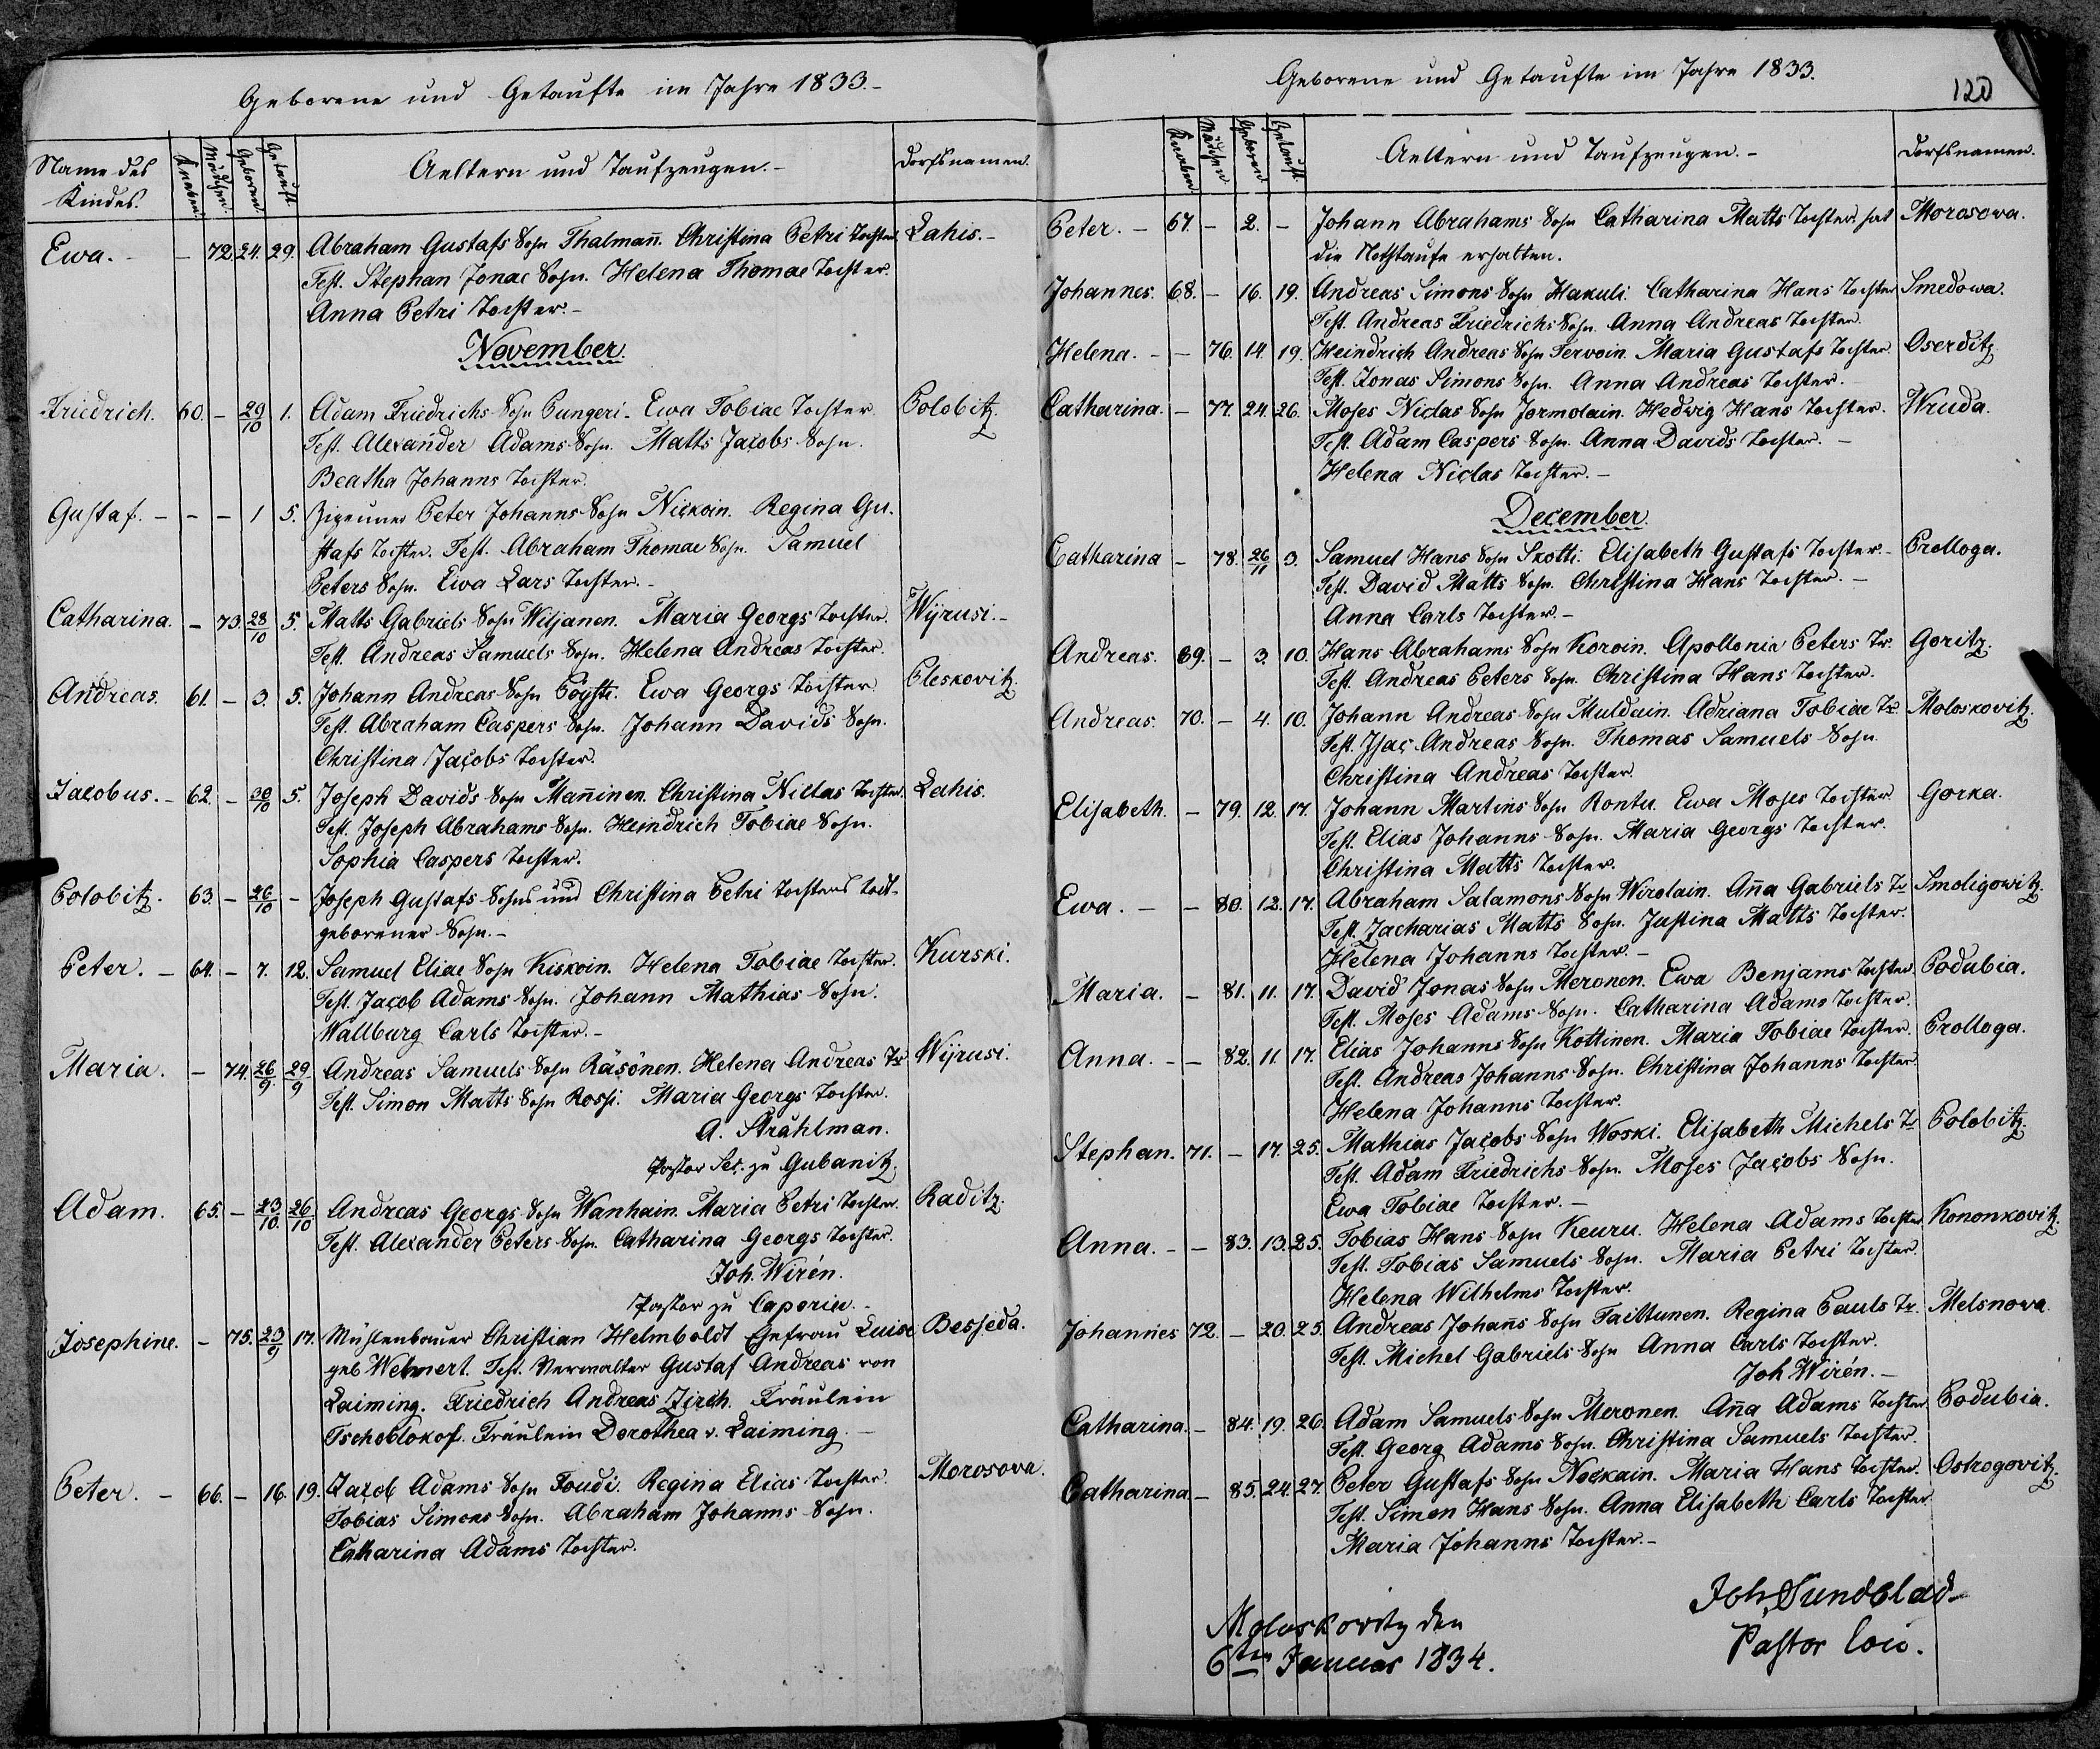 Geborene und Getaufte im Jahre 1833.-
Name des Kindes. Knaben. Mädchen. Geboren. Getauft. Aeltern und Taufzeugen.- Dorfsnamen.
Ewa. - - 72. 24. 29. Abraham Gustafs Sohn Thalmañ. Christina Petri Tochter. Lahis.-
Test. Stephan Jonae Sohn. Helena Thomae Tochter.
Anna Petri Tochter.-
November.
Friedrich. 60. - 29/10 1. Adam Friedrichs Sohn Pungeri. Ewa Tobiae Tochter. Polobitz.
Test. Alexander Adams Sohn. Matts Jacobs Sohn.
Beatha Johanns Tochter.
Gustaf. - - - 1 5. Zigeuner Peter Johanns Sohn Nickoin. Regina Gu-
stafs Tochter. Test. Abraham Thomae Sohn. Samuel
Peters Sohn. Ewa Lars Tochter.-
Catharina. - 73. 28/10 5. Matts Gabriels Sohn Wiljanen. Maria Georgs Tochter. Wÿrusi.-
Test. Andreas Samuels Sohn. Helena Andreas Tochter.
Andreas. 61. - 3. 5. Johann Andreas Sohn Pöysti. Ewa Georgs Tochter. Pleskovitz.
Test. Abraham Caspers Sohn. Johann Davids Sohn.
Christina Jacobs Tochter.
Jacobus. - 62. - 30/10 5. Joseph Davids Sohn Mañinen. Christina Niclas Tochter. Lahis.
Test. Joseph Abrahams Sohn. Heindrich Tobiae Sohn.
Sophia Caspers Tochter.
Polobitz. 63. - 26/10 - Joseph Gustafs Sohns und Christina Petri Tochters todt-
geborener Sohn.-
Peter. - 64. - 7. 12. Samuel Eliae Sohn Kiskoin. Helena Tobiae Tochter. Kurski.
Test. Jacob Adams Sohn. Johann Mathias Sohn.
Wallburg Carls Tochter.-
Maria. - 74. 26/9. 29/9 Andreas Samuels Sohn Räsönen. Helena Andreas Tr. Wÿrusi.
Test. Simon Matts Sohn Rossi. Maria Georgs Tochter.
A. Stråhlman.
Pastor Sec. zu Gubanitz.
Adam. 65. - 23/10. 26/10 Andreas Georgs Sohn Wanhain. Maria Petri Tochter. Raditz.
Test. Alexander Peters Sohn. Catharina Georgs Tochter.
Joh. Wirén.
Pastor zu Caporie.-
Josephine. - 75. 23/9 17. Mühlenbauer Christian Helmboldt Ehefrau Luise Besseda.
geb. Wehnert. Test. Verwalter Gustaf Andreas von
Laiming. Friedrich Andreas Zirch. Fräulein
Tschoblokof. Fräulein Dorothea v. Laiming.-
Peter. - 66. - 16. 19. Jacob Adams Sohn Toudi. Regina Elias Tochter. Morosova.
Tobias Simons Sohn. Abraham Johanns Sohn.
Catharina Adams Tochter.
Geborene und Getaufte im Jahre 1833.
120
Knaben. Mädchen. Geboren. Getauft. Aeltern und Taufzeugen.- Dorfsnamen.
Peter. - 67. - 2. - Johann Abrahams Sohn Catharina Matts Tochter hat Morosova.
die Nothtaufe erhalten.
Johannes. 68. - 16. 19. Andreas Simons Sohn Hakuli. Catharina Hans Tochter Smedowa.
Test. Andreas Friedrichs Sohn. Anna Andreas Tochter.
Helena. - - 76. 14. 19. Heindrich Andreas Sohn Tervoin. Maria Gustafs Tochter. Oserditz.
Test. Jonas Simons Sohn. Anna Andreas Tochter.
Catharina. - 77. 24. 26. Moses Niclas Sohn Jormolain. Hedwig Hans Tochter. Wruda.
Test. Adam Caspers Sohn. Anna Davids Tochter.-
Helena Niclas Tochter.-
December.
Catharina - 78. 26/11 3. Samuel Hans Sohn Skotti. Elisabeth Gustafs Tochter.- Prolloga.
Test. David Matts Sohn. Christina Hans Tochter.-
Anna Carls Tochter.-
Andreas. 69. - 3. 10. Hans Abrahams Sohn Koroin. Apollonia Peters Tr. Goritz.
Test. Andreas Peters Sohn. Christina Hans Tochter.
Andreas. 70. - 4. 10. Johann Andreas Sohn Muldain. Adriana Tobiae Tr. Moloskovitz.
Test. Isac Andreas Sohn. Thomas Samuels Sohn
Christina Andreas Tochter.
Elisabeth. - 79. 12. 17. Johann Martins Sohn Rontu. Ewa Moses Tochter. Gorka.
Test. Elias Johanns Sohn. Maria Georgs Tochter.
Christina Matts Tochter.
Ewa. - - 80. 12. 17. Abraham Salamons Sohn Wirolain. Aña Gabriels Tr. Smoligowitz.
Test. Zacharias Matts Sohn. Justina Matts Tochter.
Helena Johanns Tochter.-
Maria. - 81. 11. 17. David Jonas Sohn Meronen. Ewa Benjams Tochter. Podubia.
Test. Moses Adams Sohn. Catharina Adams Tochter.
Anna. - - 82. 11. 17. Elias Johanns Sohn Kottinen. Maria Tobiae Tochter. Prolloga.
Test. Andreas Johanns Sohn. Christina Johanns Tochter.
Helena Johanns Tochter.
Stephan. 71. - 17. 25. Mathias Jacobs Sohn Woski. Elisabeth Michels Tr. Polobitz.
Test. Adam Friedrichs Sohn. Moses Jacobs Sohn.
Ewa Tobiae Tochter.-
Anna. - - 83. 13. 25. Tobias Hans Sohn Keuru. Helena Adams Tochter. Kononkovitz.
Test. Tobias Samuels Sohn. Maria Petri Tochter.
Helena Wilhelms Tochter.
Johannes 72. - 20. 25. Andreas Johañs Sohn Taittunen. Regina Pauls Tr. Melsnova.
Test. Michel Gabriels Sohn Anna Carls Tochter.
Joh Wirén.-
Catharina. - 84. 19. 26. Adam Samuels Sohn Meronen. Aña Adams Tochter. Podubia.
Test. Georg Adams Sohn. Christina Samuels Tochter.
Catharina - 85. 24. 27. Peter Gustafs Sohn Nockain. Maria Hans Tochter. Ostrogovitz.
Test. Simon Hans Sohn. Anna Elisabeth Carls Tochter
Maria Johanns Tochter.-
Joh. Sundblad
Moloskovitz den Pastor loci.
6ten Januar 1834.